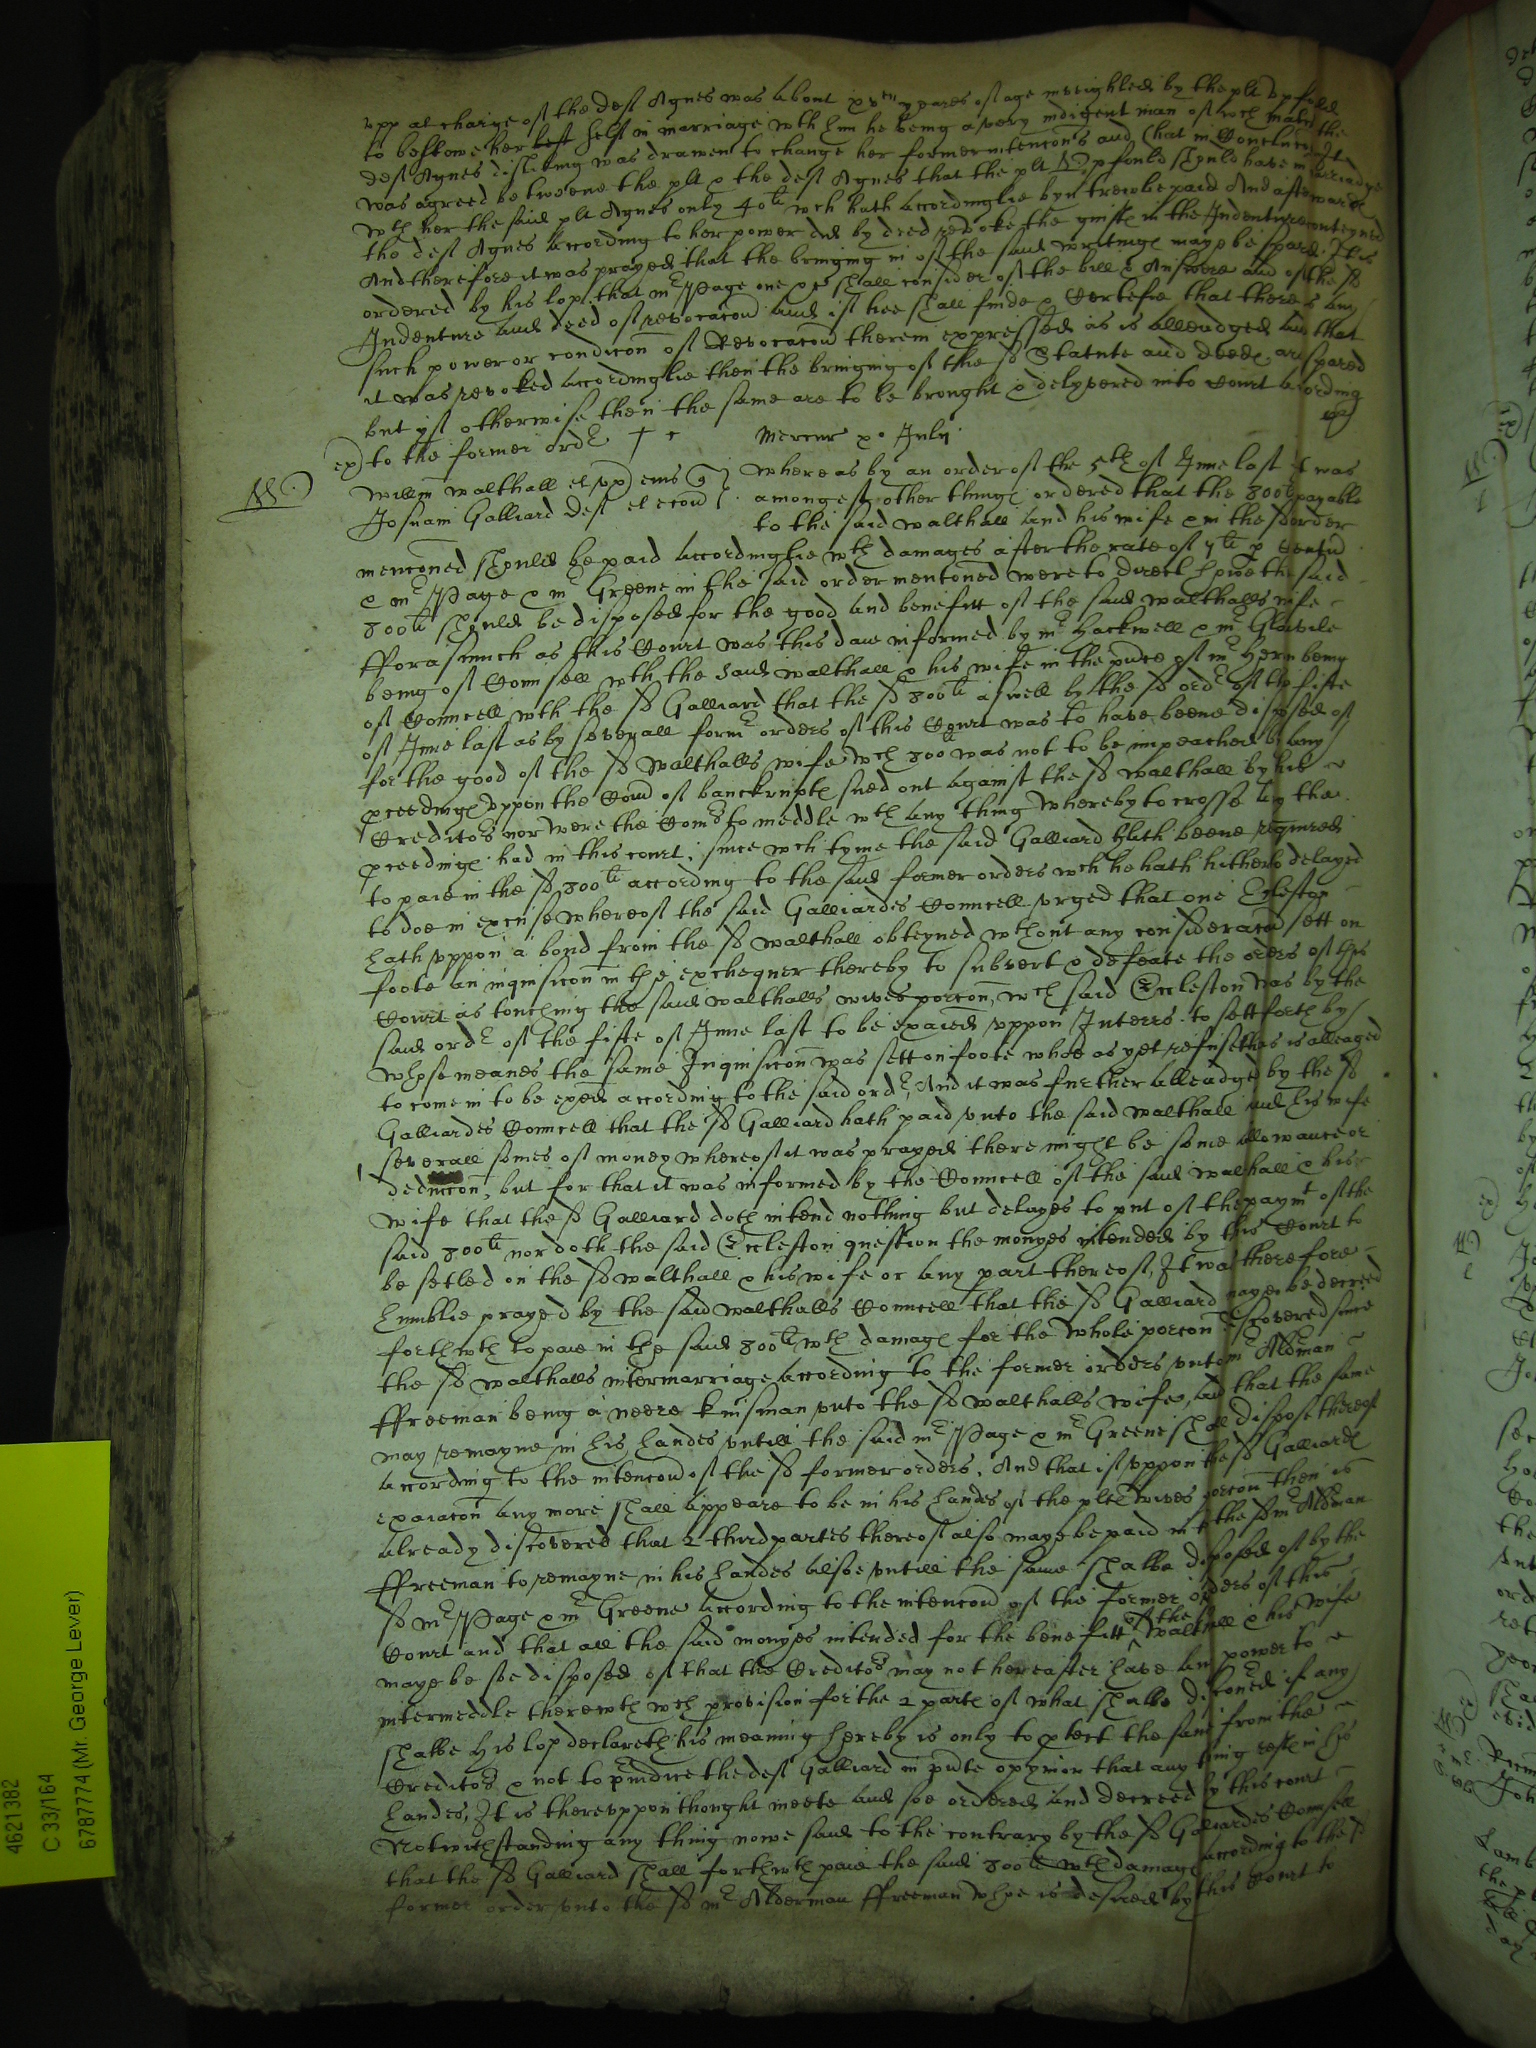 vpp at charge of the def Agnes was about xv yeares of age inveighled by the plt Vpfold
to bestowe her self in marriage wth him he being a very indigent man of wch match the
def Agnes disliking was drawen to change her former intencons and that in Conclucon It
was agreed betweene the plt & the def Agnes that the plt Vpfould should have in marriadge
wth her the said plt Agnes only 40li wch hath accordinglie byn trewlie paid And afterward
the def Agnes according to her power did by deed revoke the in the Indenture conteyned
And therefore it was prayed that the bringing in of the said writings maye be spared. It is
ordered by his lop that mr Page one shall consider of the bill & Answere and of the sd
Indenture and deed of revocacon and if hee shall finde & Certefie that there is any
such power or condicon of Revocacon therein expressed as is alleadged and that
it was revoked accordinglie then the bringing of the sd Statute and deede are spared
but yf otherwise then the same are to be brought & delyvered into Court according
ex) to the former ordr
Mercur xo July
Willm Walthall et vx
Josuam Galliard def et econ
Whereas by an order of the 5th of June last it was
amongest other things ordered that the 800li payable
to the said Walthall and his wife & in the sd order
mencioned should be paid accordinglie wth damages after the rate of 7li p Centu
& mr Page & mr Greene in the said order mentoned were to direct howe the said
800li should be disposed for the good and benefitt of the said Walthalls wife
fforasmuch as this Court was this daie informed by mr Hackwell & mr Glanvile
being of Counsell wth the said Walthall & his wife in the pnce of mr Hern being
of Councell wth the sd Galliard that the sd 800li aswell by the sd ordr of the fifte
of June last as by severall formr orders of this Court was to have beene disposed of
for the good of the sd Walthalls wife wch 800li was not to be impeached by any
pceedings vppon the Com of banckrupts sued out against the sd Walthall by his
Creditors nor were the Comrs to meddle wth any thing whereby to crosse any the
pceedings had in this court, since wch tyme the said Galliard hath beene required
to paie in the sd 800li according to the said former orders wch he hath hitherto delayed
to doe in excuse whereof the said Galliardes Councell vrged that one Ecleston
hath vppon a bond from the sd Walthall obteyned wthout any consideracon sett on
foote an inquisicon in the exchequer thereby to subvert & defeate the orders of this
Court as touching the said Walthalls wives porcon, wch said Eccleston was by the
said ordr of the fifte of June last to be exaied vppon Interrs. to sett forth by
whose meanes the same Inquisicon was sett on foote whoe as yet refuseth as is alleaged
to come in to be exed according to the said ordr, And it was further alleadged by the sd
Galliardes Councell that the sd Galliard hath paid vnto the said Walthall and his wife
severall somes of money whereof it was prayed there might be some allowaunce or
deduccon, but for that it was informed by the Councell of the said Walhall & his
wife that the sd Galliard doth intend nothing but delayes to put of the paymt of the
said 800li nor doth the said Eccleston question the monyes intended by this Court to
be setled on the sd Walthall & his wife or any part thereof, It was therefore
humblie prayed by the said Walthalls Councell that the sd Galliard maye be decreed
forthwth to paie in the said 800li wth damag for the whole porcon discovered since
the sd Walthalls intermarriage according to the former orders vnto mr Alderman
ffreeman being a neere kinsman vnto the sd Walthalls wife, and that the same
may remayne in his handes vntill the said mr Page & mr Greene shall dispose thereof
according to the intencon of the sd former orders. And that if vppon the sd Galliards
exaiacon any more shall appeare to be in his handes of the plts wives porcon then is
already discovered that 2 third partes thereof also maye be paid into the sd mr Alderman
ffreeman to remayne in his handes alsoe vntill the same shalbe disposed of by the
sd mr Page & mr Greene according to the intencon of the former orders of this
Court and that all the said monyes intended for the benefitt of the Walthall & his wife
maye be soe disposed of that the Creditors may not hereafter have any power to
intermeddle therewth wch provision for the 2 parts of what shalbe discovered if any
shalbe his lop declareth his meaning hereby is only to ptect the same from the
Creditors & not to preiudice the def Galliard in pnte opynion that any thing rests in his
handes, It is therevppon thought meete and soe ordered and decreed by this court
Notwithstanding any thing nowe said to the contrary by the sd Galliardes Counsell
that the sd Galliard shall forthwth paie the said 800li wth damage according to the sd
former order vnto the sd mr Alderman ffreeman whoe is desired by this Court to
4621382
C 33/164
6787774 (Mr. George Lever)